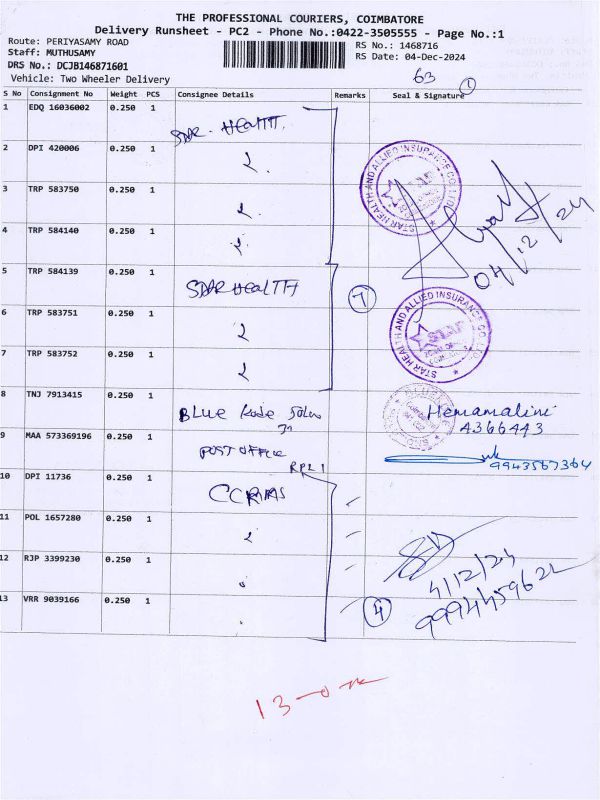 THE PROFESSIONAL COURIERS, COIMBATORE
Delivery Runsheet - PC2 - Phone No.:0422-3505555 - Page No.:1
Route: PERIYASAMY ROAD
RS No.: 1468716
Staff: MUTHUSAMY
RS Date: 04-Dec-2024
DRS No.: DCJB146871601
Vehicle: Two Wheeler Delivery
63
1
S No Consignment No Weight PCS Consignee Details Remarks Seal & Signature
1 EDQ 16036002 0.250 1 STAR HEALTH
2 DPI 420006 0.250 1
3 TRP 583750 0.250 1
4 TRP 584140 0.250 1
STAR HEALTH AND ALLIED INSURANCE CO. LTD
04/12/24
5 TRP 584139 0.250 1 STAR HEALTH
7
6 TRP 583751 0.250 1
7 TRP 583752 0.250 1
STAR HEALTH AND ALLIED INSURANCE CO. LTD
8 TNJ 7913415 0.250 1 BLUE
Hemamalini
4366443
9 MAA 573369196 0.250 1 POST OFFICE
9943567364
10 DPI 11736 0.250 1 CCRAAS
11 POL 1657280 0.250 1
12 RJP 3399230 0.250 1
4/12/24
13 VRR 9039166 0.250 1
4
13